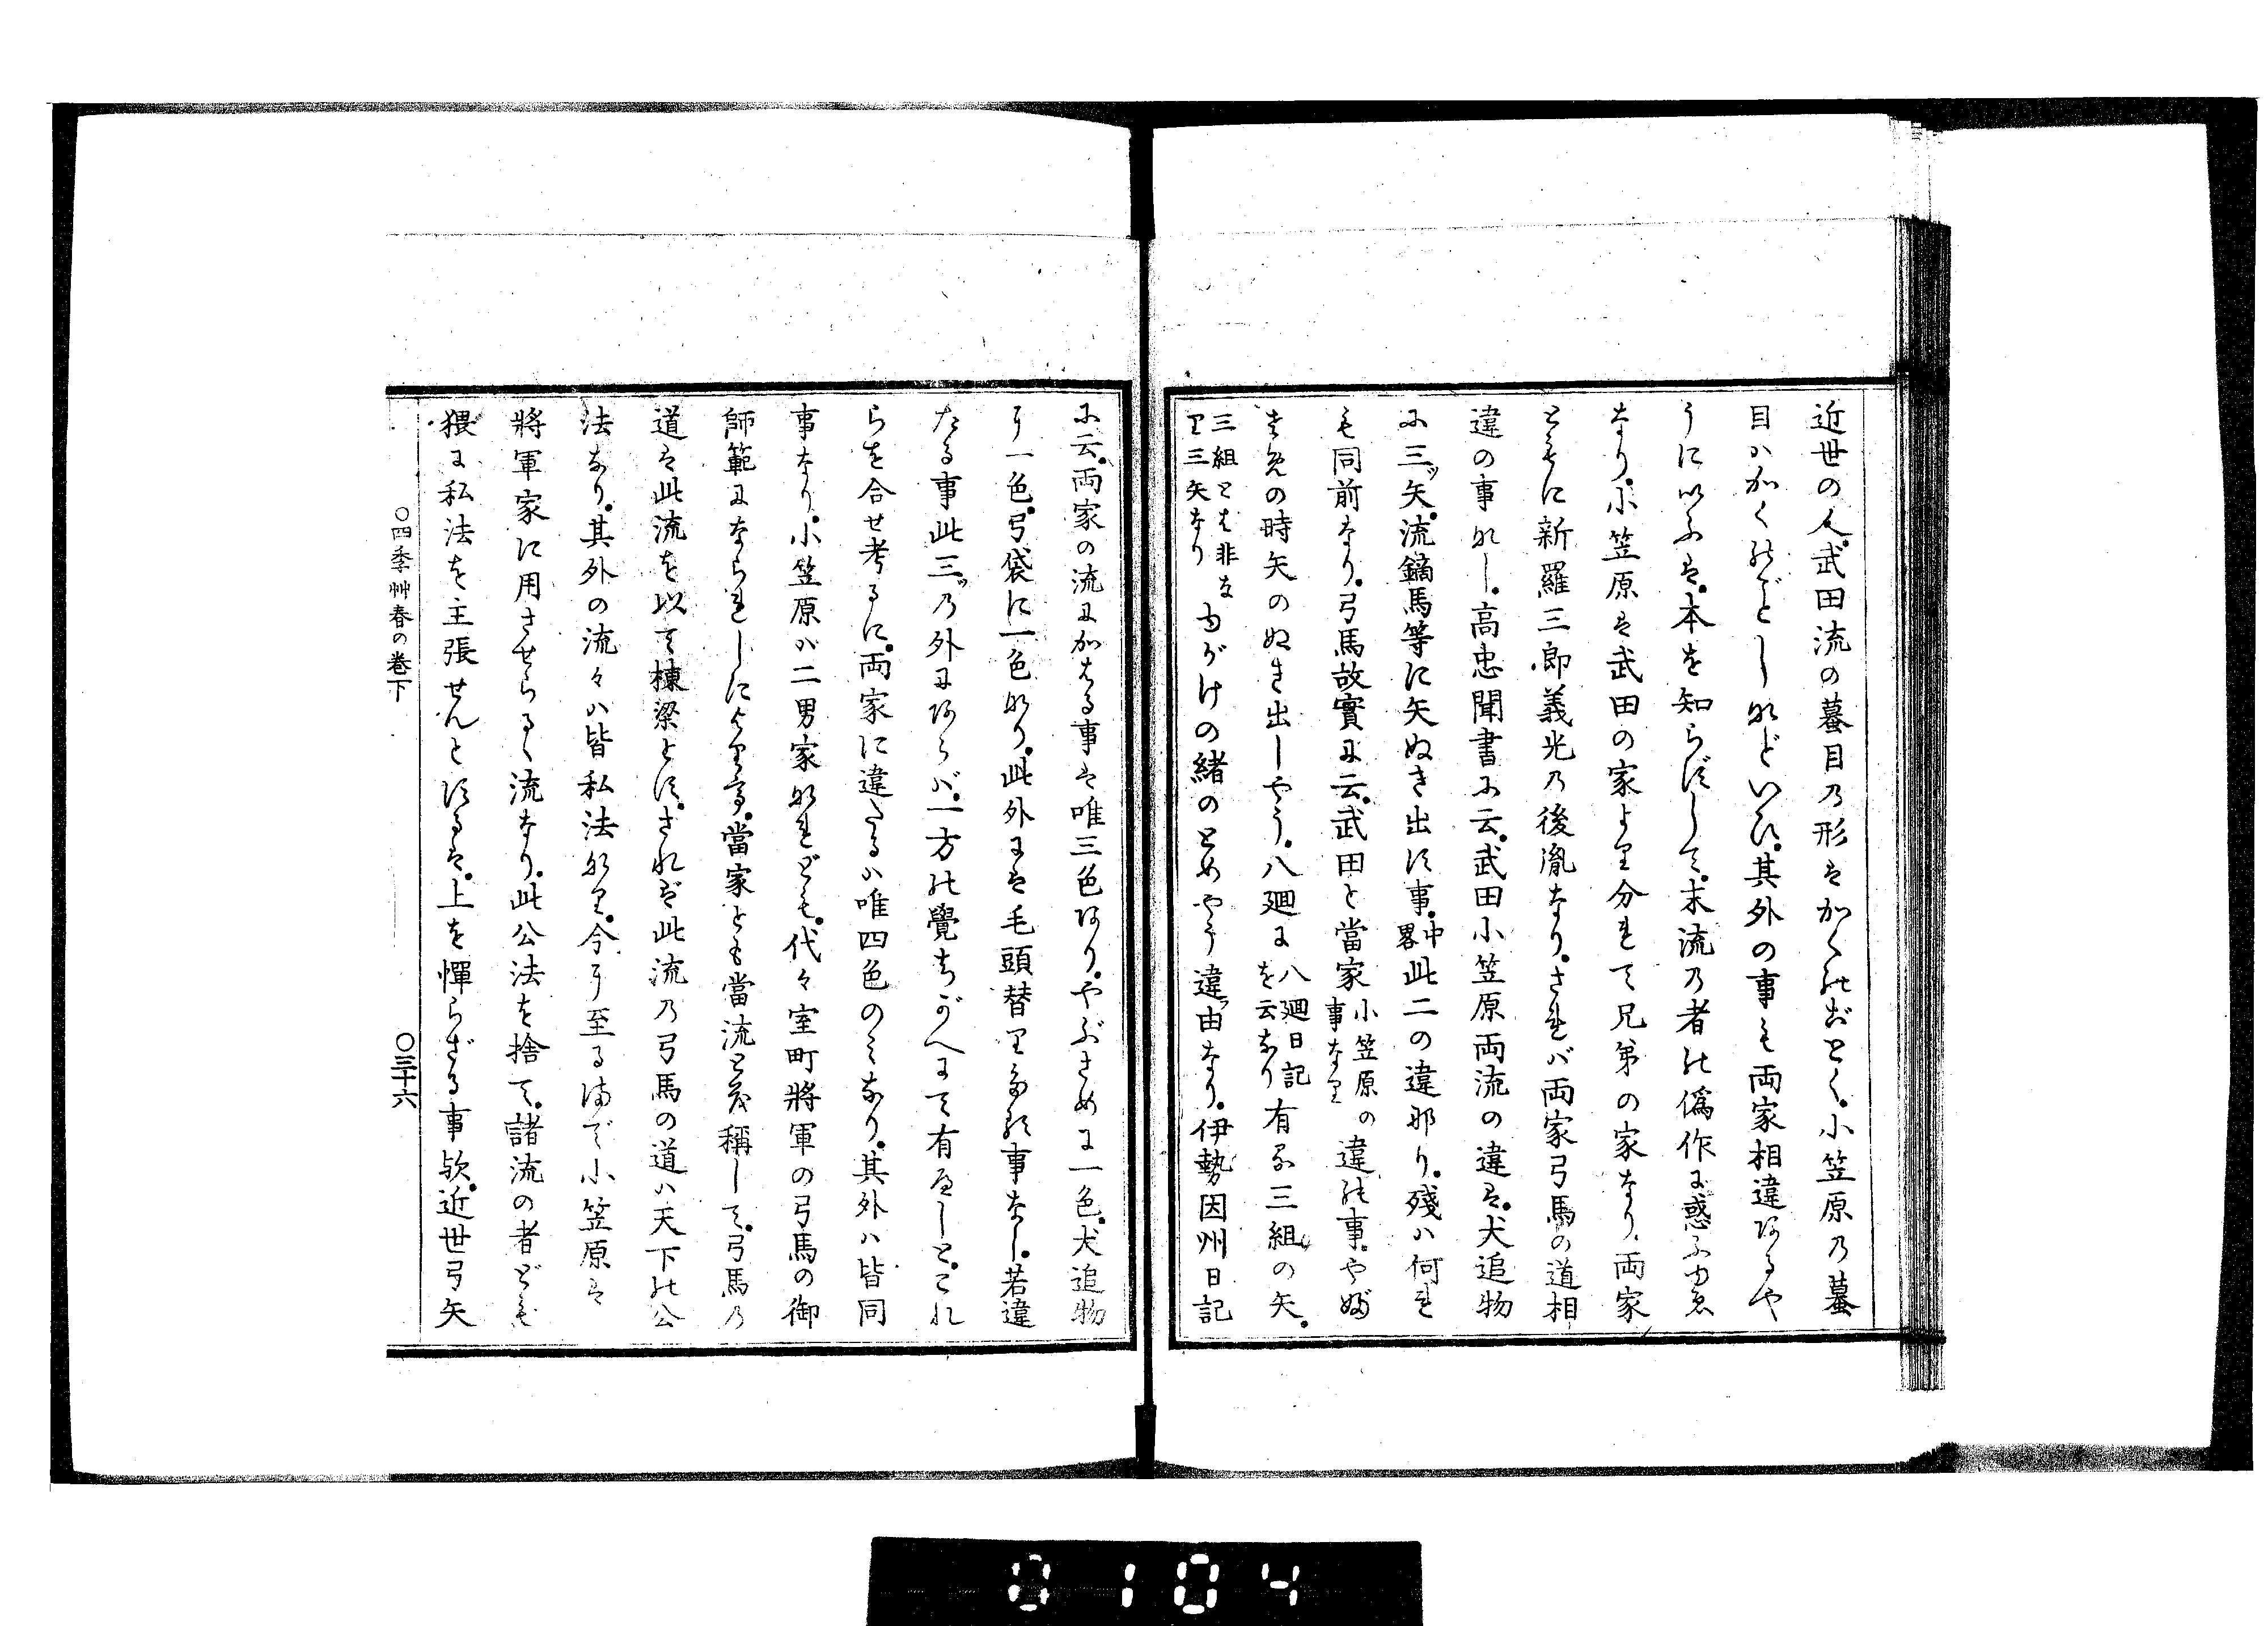 近世の人。武田流の蟇目乃形はかくのおとく。小笠原乃蟇
目ハかくのごとしなどいひ。其外の事も両家相違あるや
うにいふは。本を知らずして。末流乃者の僞作に惑ふゆゑ
なり。小笠原は武田の家より分れて兄弟の家なり。両家
ともに新羅三郎義光乃後胤なり。されバ両家弓馬の道相
違の事なし。高忠聞書に云。武田小笠原両流の違は。犬追物
に三ッ矢。流鏑馬等に矢ぬき出す事。中畧此二の違那り。殘ハ何れ
も同前なり。弓馬故實に云。武田と當家小笠原の事なり違の事。やぶ
さめの時矢のぬき出しやう。八廻に八廻日記を云なり有る三組の矢。
三組とは非なり三矢なりゆがけの緒のとめやう違ッ由なり。伊勢因州日記
に云。両家の流にかはる事は唯三色あり。やぶさめに一色。犬追物
に一色。弓袋に一色なり。此外には毛頭替り多る事なし。若違
たる事此三ッ乃外にあらバ。一方の覺ちがへにて有べしと。これ
らを合せ考るに。両家に違たるハ唯四色のミなり。其外ハ皆同
事なり。小笠原ハ二男家なれども。代々室町將軍の弓馬の御
師範にならせしにより弖。當家とも當流とも稱して。弓馬乃
道は此流を以て棟梁とす。されば此流乃弓馬の道ハ天下の公
法なり。其外の流々ハ皆私法なり。今に至るまで小笠原は
將軍家に用させらるゝ流なり。此公法を捨て。諸流の者ども
猥に私法を主張せんとするは。上を憚らざる事歟。近世弓矢
○四季艸春の巻下
○三十六
0104